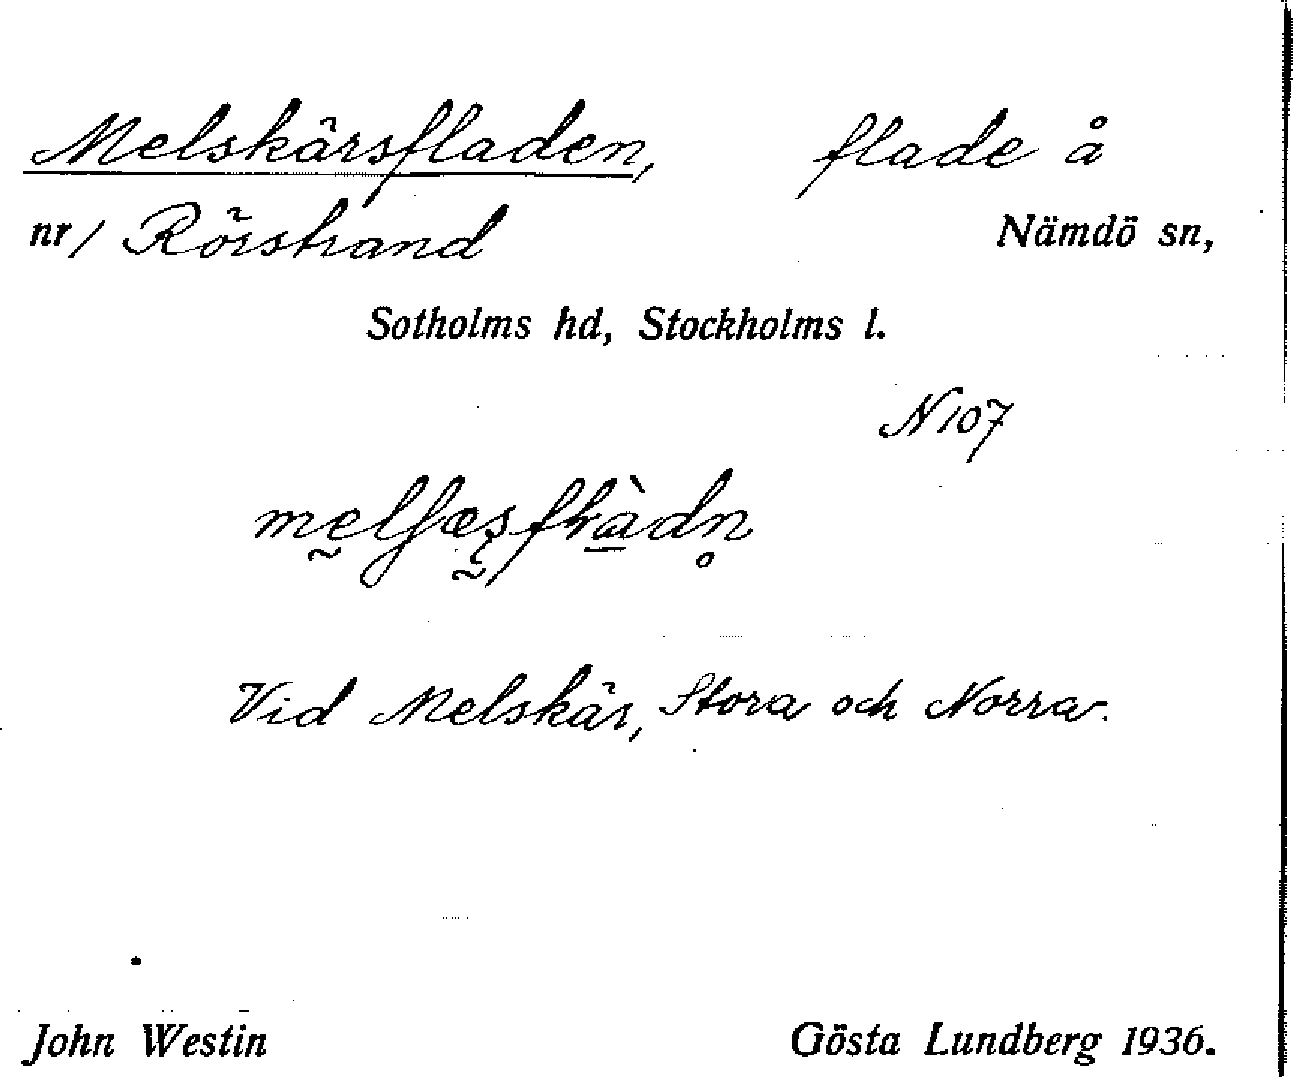 Melskärsfladen, flade å
nr/ Rörstrand Nämdö sn,
Sotholms hd, Stockholms l.
N 107
Vid Melskär, Stora och Norra.
John Westin Gösta Lundberg 1936.